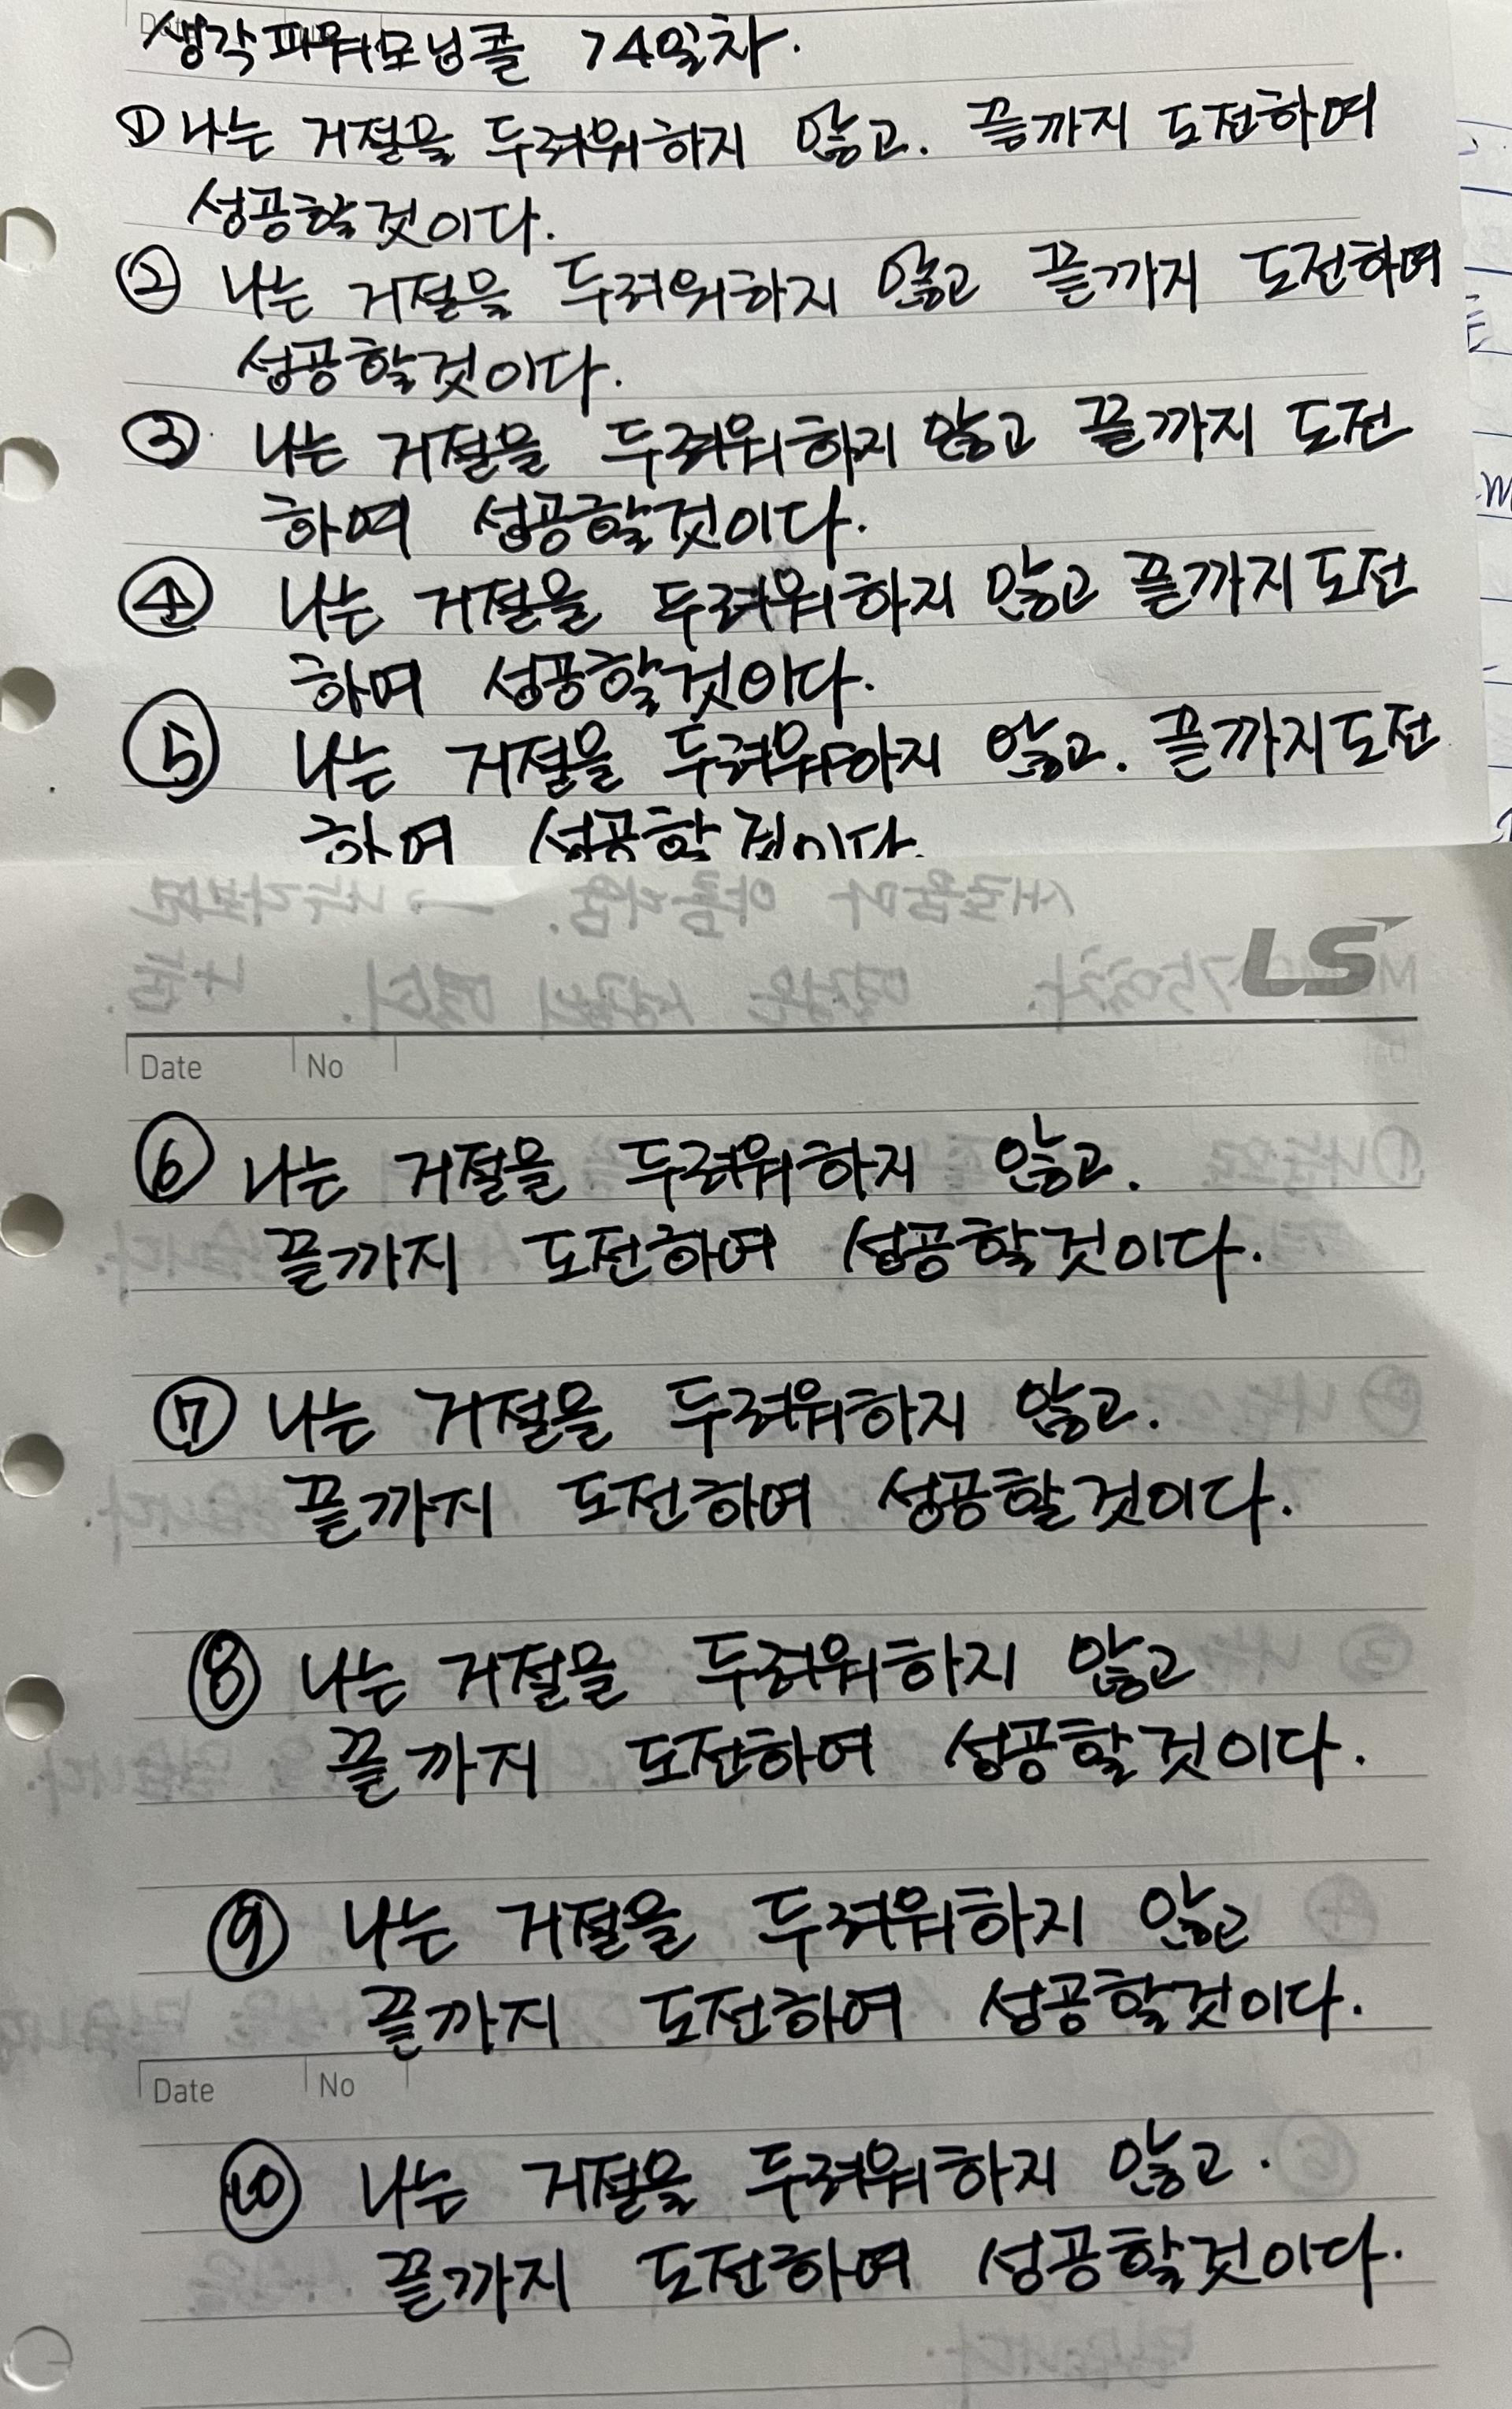 생각파워모닝콜 74일차.
① 나는 거절을 두려워하지 않고. 끝까지 도전하여
성공할것이다.
② 나는 거절을 두려워하지 않고 끝까지 도전하며
성공할것이다.
③ 나는 거절을 두려워하지 않고 끝까지 도전
하여 성공할것이다.
④ 나는 거절을 두려워하지 않고 끝까지 도전
하며 성공할것이다.
⑤ 나는 거절을 두려워하지 않고. 끝까지 도전
하여 성공할것이다.
LS
Date No
⑥ 나는 거절을 두려워하지 않고.
끝까지 도전하여 성공할것이다.
⑦ 나는 거절을 두려워하지 않고.
끝까지 도전하여 성공할것이다.
⑧ 나는 거절을 두려워하지 않고
끝까지 도전하여 성공할것이다.
⑨ 나는 거절을 두려워하지 않고
끝까지 도전하여 성공할것이다.
Date No
⑩ 나는 거절을 두려워하지 않고.
끝까지 도전하여 성공할것이다.